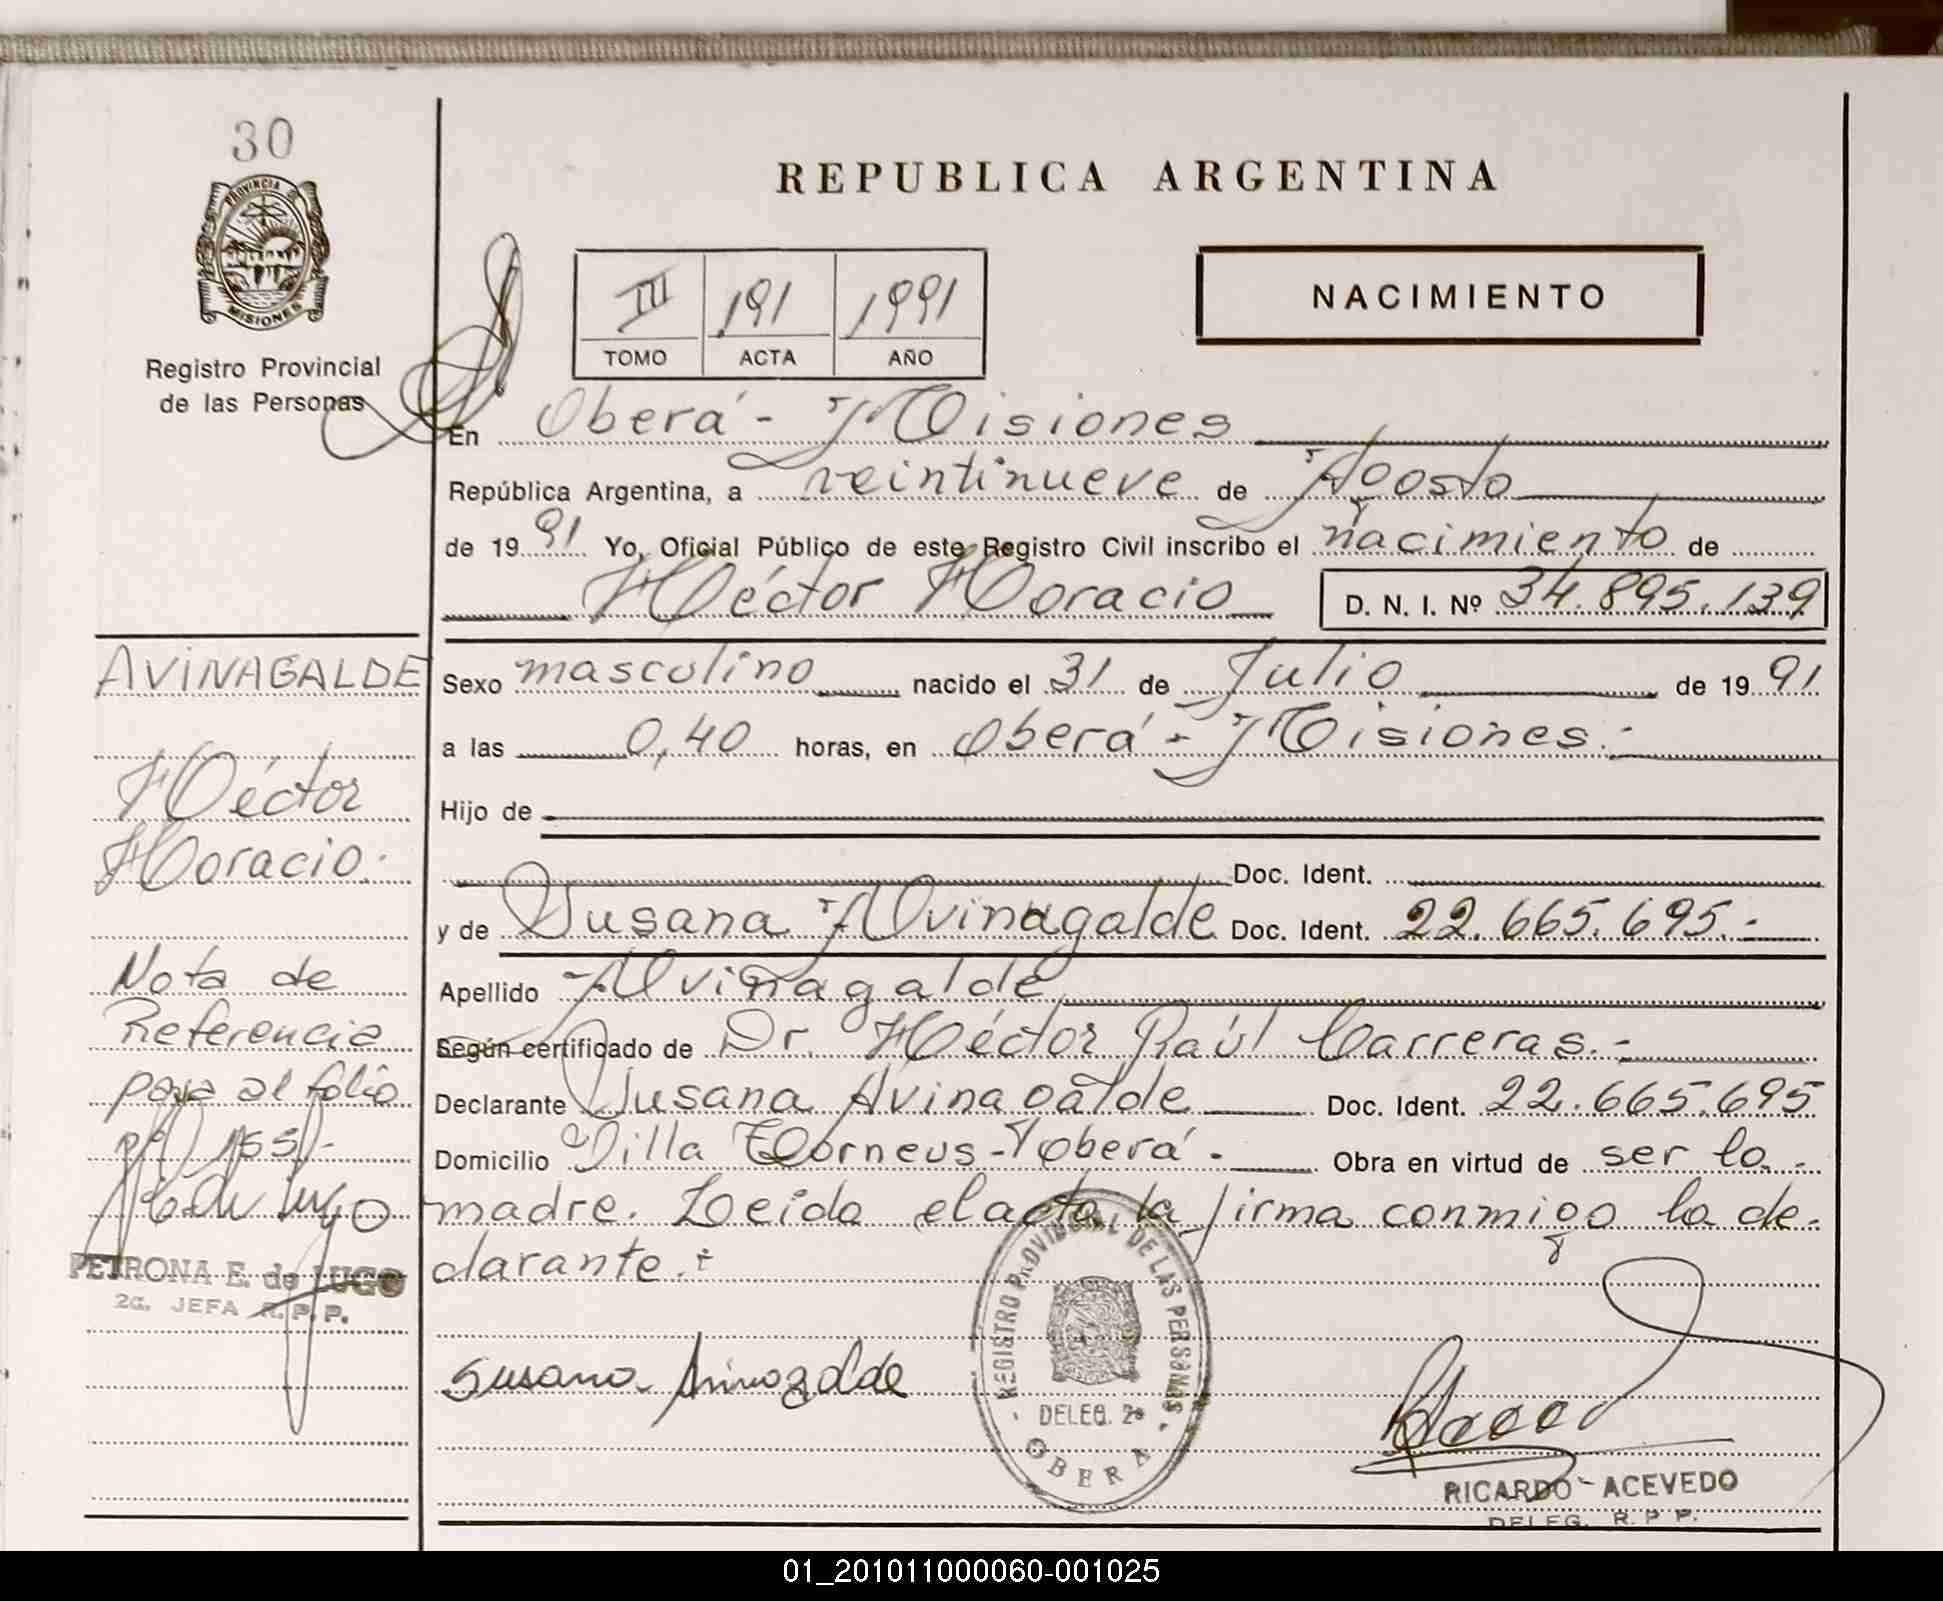 30
PROVINCIA
MISIONES
Registro Provincial
de las Personas
REPUBLICA ARGENTINA
III 191 1991
TOMO ACTA AÑO
NACIMIENTO
En Oberá - Misiones
República Argentina, a veintinueve de Agosto
de 1991 Yo, Oficial Público de este Registro Civil inscribo el nacimiento de
Héctor Horacio D. N. I. Nº 34.895.139
Sexo masculino nacido el 31 de Julio de 1991
a las 0,40 horas, en Oberá - Misiones.-
Hijo de
Doc. Ident.
y de Susana Avinagalde Doc. Ident. 22.665.695.-
Apellido Avinagalde
Según certificado de Dr. Héctor Raúl Carreras.-
Declarante Susana Avinagalde Doc. Ident. 22.665.695
Domicilio Villa Oberá. Obra en virtud de ser la
madre. Leida el acta, la firma conmigo la de-
clarante.
Susana Avinagalde
REGISTRO PROVINCIAL DE LAS PERSONAS
DELEG. 2a
OBERA
RICARDO ACEVEDO
DELEG. R.P.P.
AVINAGALDE
Héctor
Horacio.
Nota de
Referencia
pasa al folio
155
PETRONA E. de LUGO
2a. JEFA R.P.P.
01_201011000060-001025